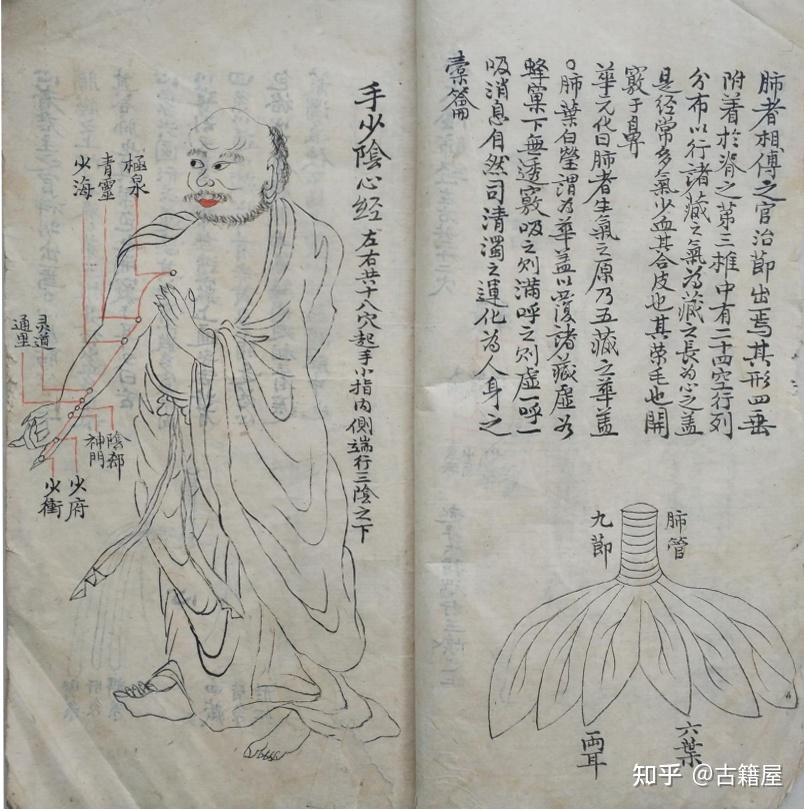 肺者相傅之官治節出焉其形四垂
附着於脊之第三椎中有二十四空行列
分布以行諸藏之氣為藏之長為心之盖
是經常多氣少血其合皮也其荣毛也開
竅于鼻
華元化曰肺者生氣之原乃五藏之華盖
。肺葉白瑩謂為華盖以覆諸藏虛如
蜂窠下無透竅吸之則滿呼之則虛一呼一
吸消息自然司清濁之運化為人身之
橐籥
肺管
九節
六葉
兩耳
手少陰心經
左右共十八穴起手小指内側端行三陰之下
極泉
青靈
少海
灵道
通里
陰郄
神門
少府
少衝
知乎 @古籍屋